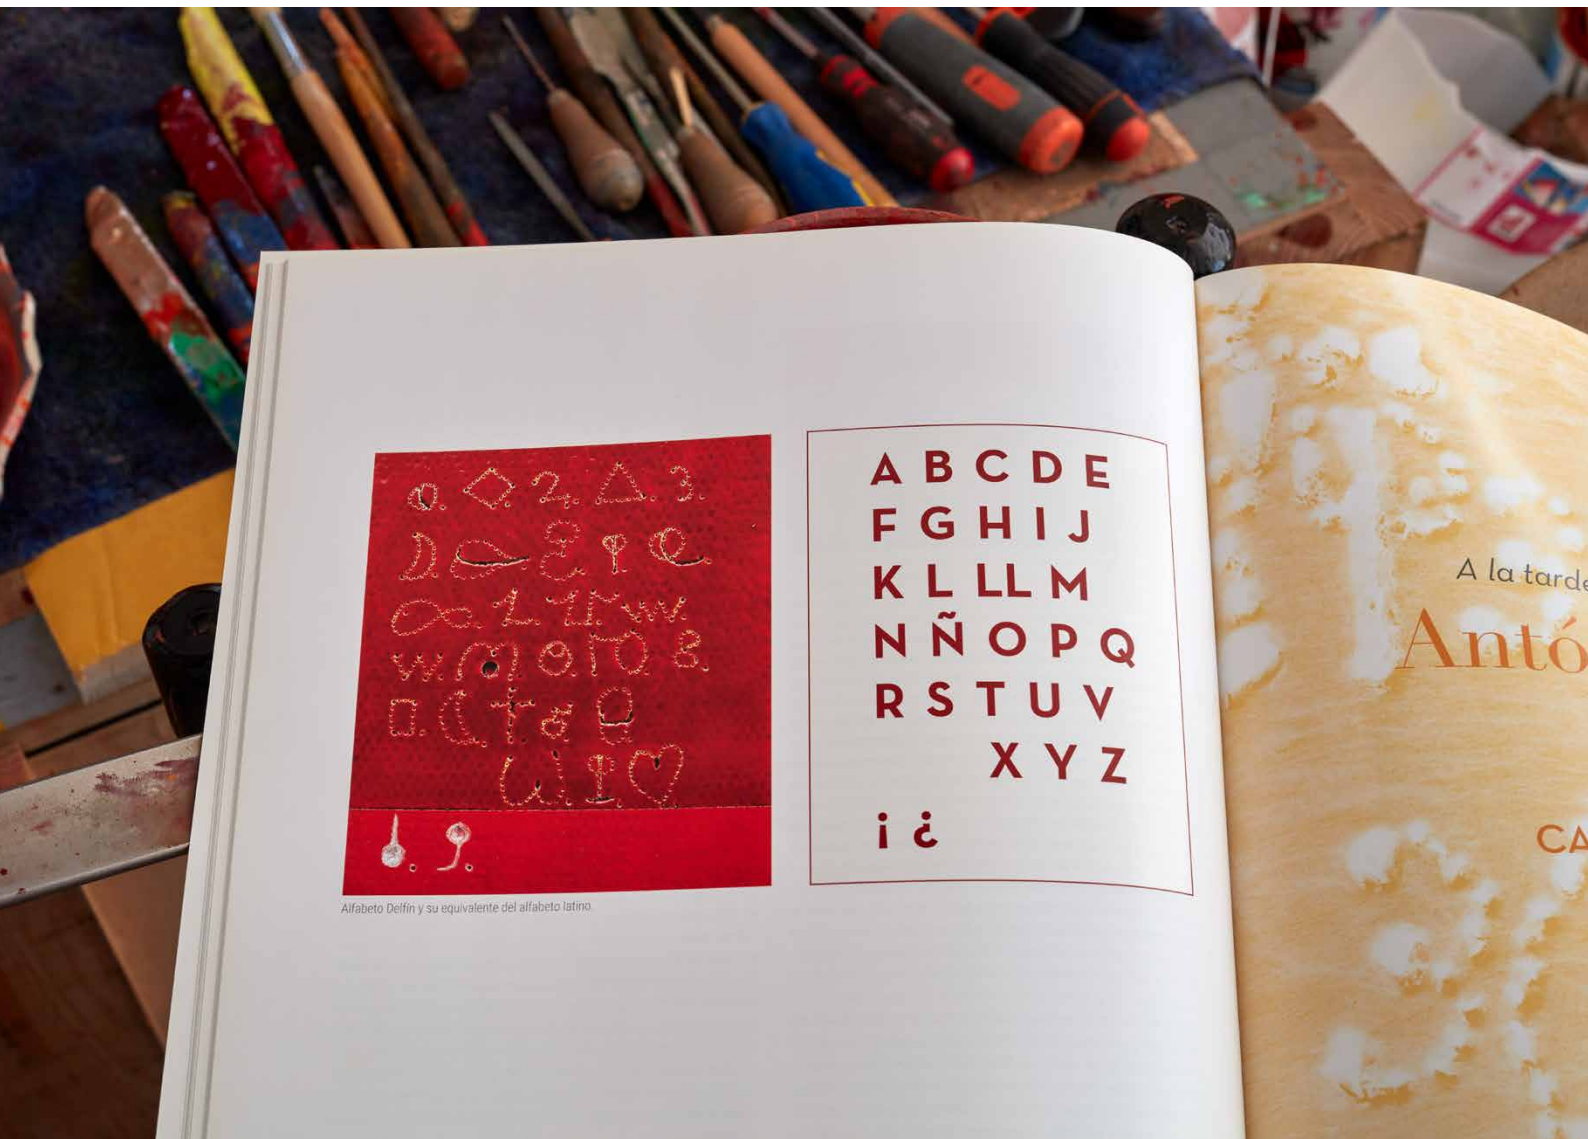 A B C D E
F G H I J
K L LL M
N Ñ O P Q
R S T U V
X Y Z
¡ ¿
Alfabeto Delfín y su equivalente del alfabeto latino.
A la tarde
Antó
CA